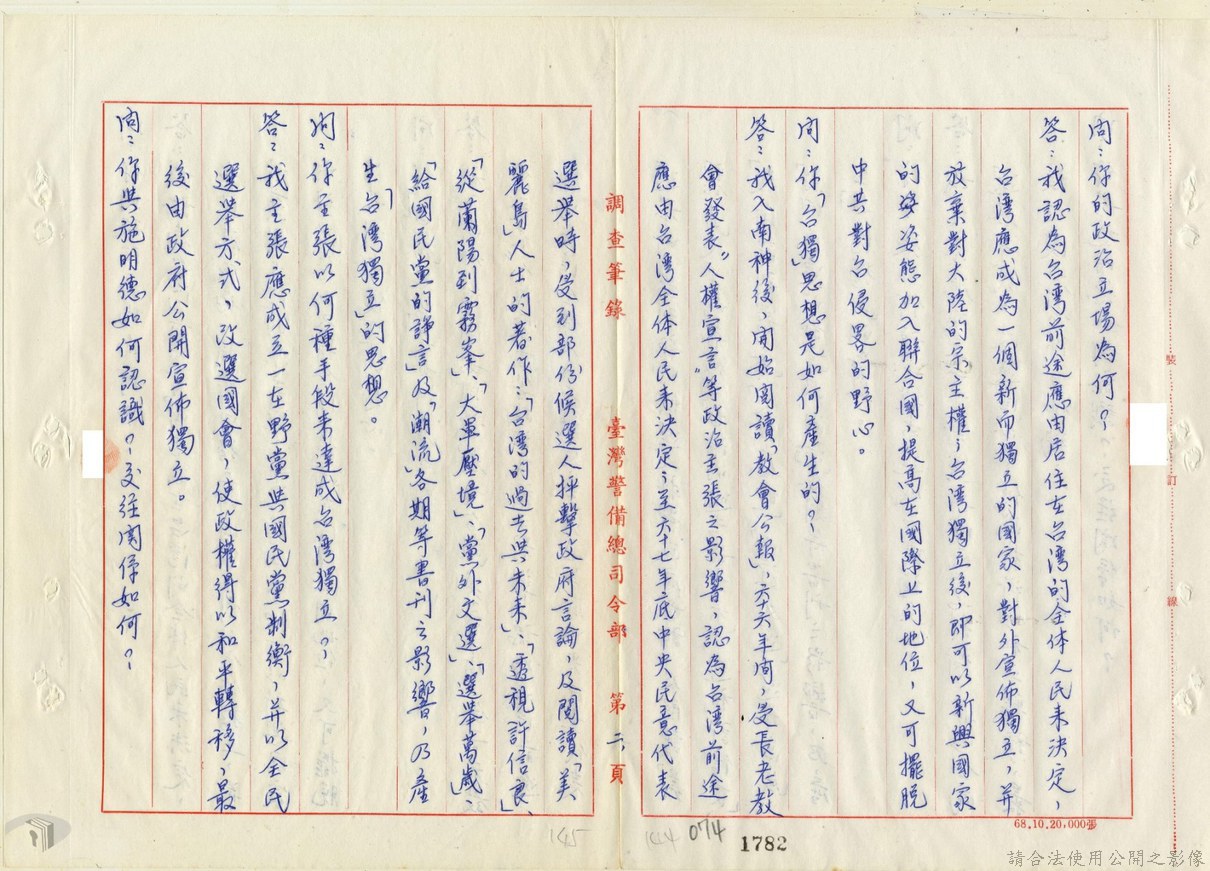 問：你的政治立場為何？
答：我認為台湾前途應由居住在台湾的全体人民來決定，
台湾應成為一個新而獨立的國家，對外宣佈獨立，并
放棄對大陸的宗主權；台湾獨立後，即可以新興國家
的姿態加入聯合國，提高在國際上的地位，又可擺脫
中共對台侵畧的野心。
問：你「台獨」思想是如何產生的？
答：我入南神後，開始閱讀「教會公報」，六十六年間，受長老教
會發表“人權宣言”等政治主張之影響，認為台湾前途
應由台湾全体人民來決定；至六十七年底中央民意代表
調查筆錄 臺灣警備總司令部 第二頁
選举時，受到部份候選人抨擊政府言論，及閱讀「美
麗島」人士的著作：「台湾的過去與未來」、「透視許信良」、
「從蘭陽到霧峯」、「大軍壓境」、「黨外文選」、「選举萬歲」、
「給國民黨的諍言」及「潮流」各期等書刊之影響，乃產
生「台湾獨立」的思想。
問：你主張以何種手段來達成台湾獨立？
答：我主張應成立一在野黨與國民黨制衡，并以全民
選举方式，改選國會，使政權得以和平轉移，最
後由政府公開宣佈獨立。
問：你與施明德如何認識？交往関係如何？
裝
訂
線
68.10.20,000張
145
144
074
1782
請合法使用公開之影像